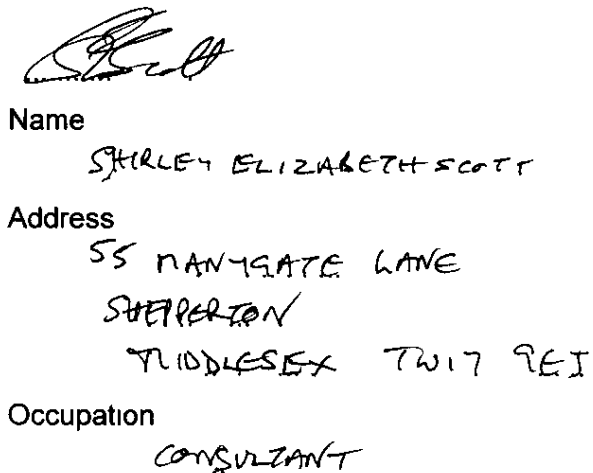 Name
SHIRLEY ELIZABETH SCOTT
Address
55 MANYGATE LANE
SHEPPERTON
MIDDLESEX TW17 9EJ
Occupation
CONSULTANT